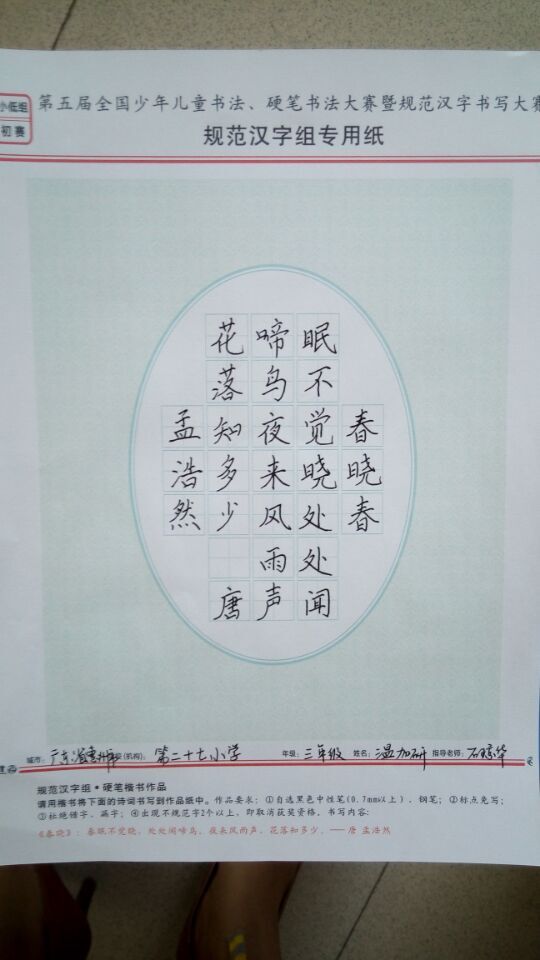 小低组
初赛
第五届全国少年儿童书法、硬笔书法大赛暨规范汉字书写大赛
规范汉字组专用纸
春晓春
眠不觉晓处处闻
啼鸟夜来风雨声
花落知多少 唐
孟浩然
城市: 广东 (机构): 第二十七小学 年级: 三年级 姓名: 温加研 指导老师:
规范汉字组·硬笔楷书作品
请用楷书将下面的诗词书写到作品纸中。作品要求：①自选黑色中性笔(0.7mm以上)、钢笔；②标点免写；
③杜绝错字、漏字；④出现不规范字2个以上，即取消获奖资格。书写内容：
《春晓》：春眠不觉晓，处处闻啼鸟。夜来风雨声，花落知多少。——唐 孟浩然